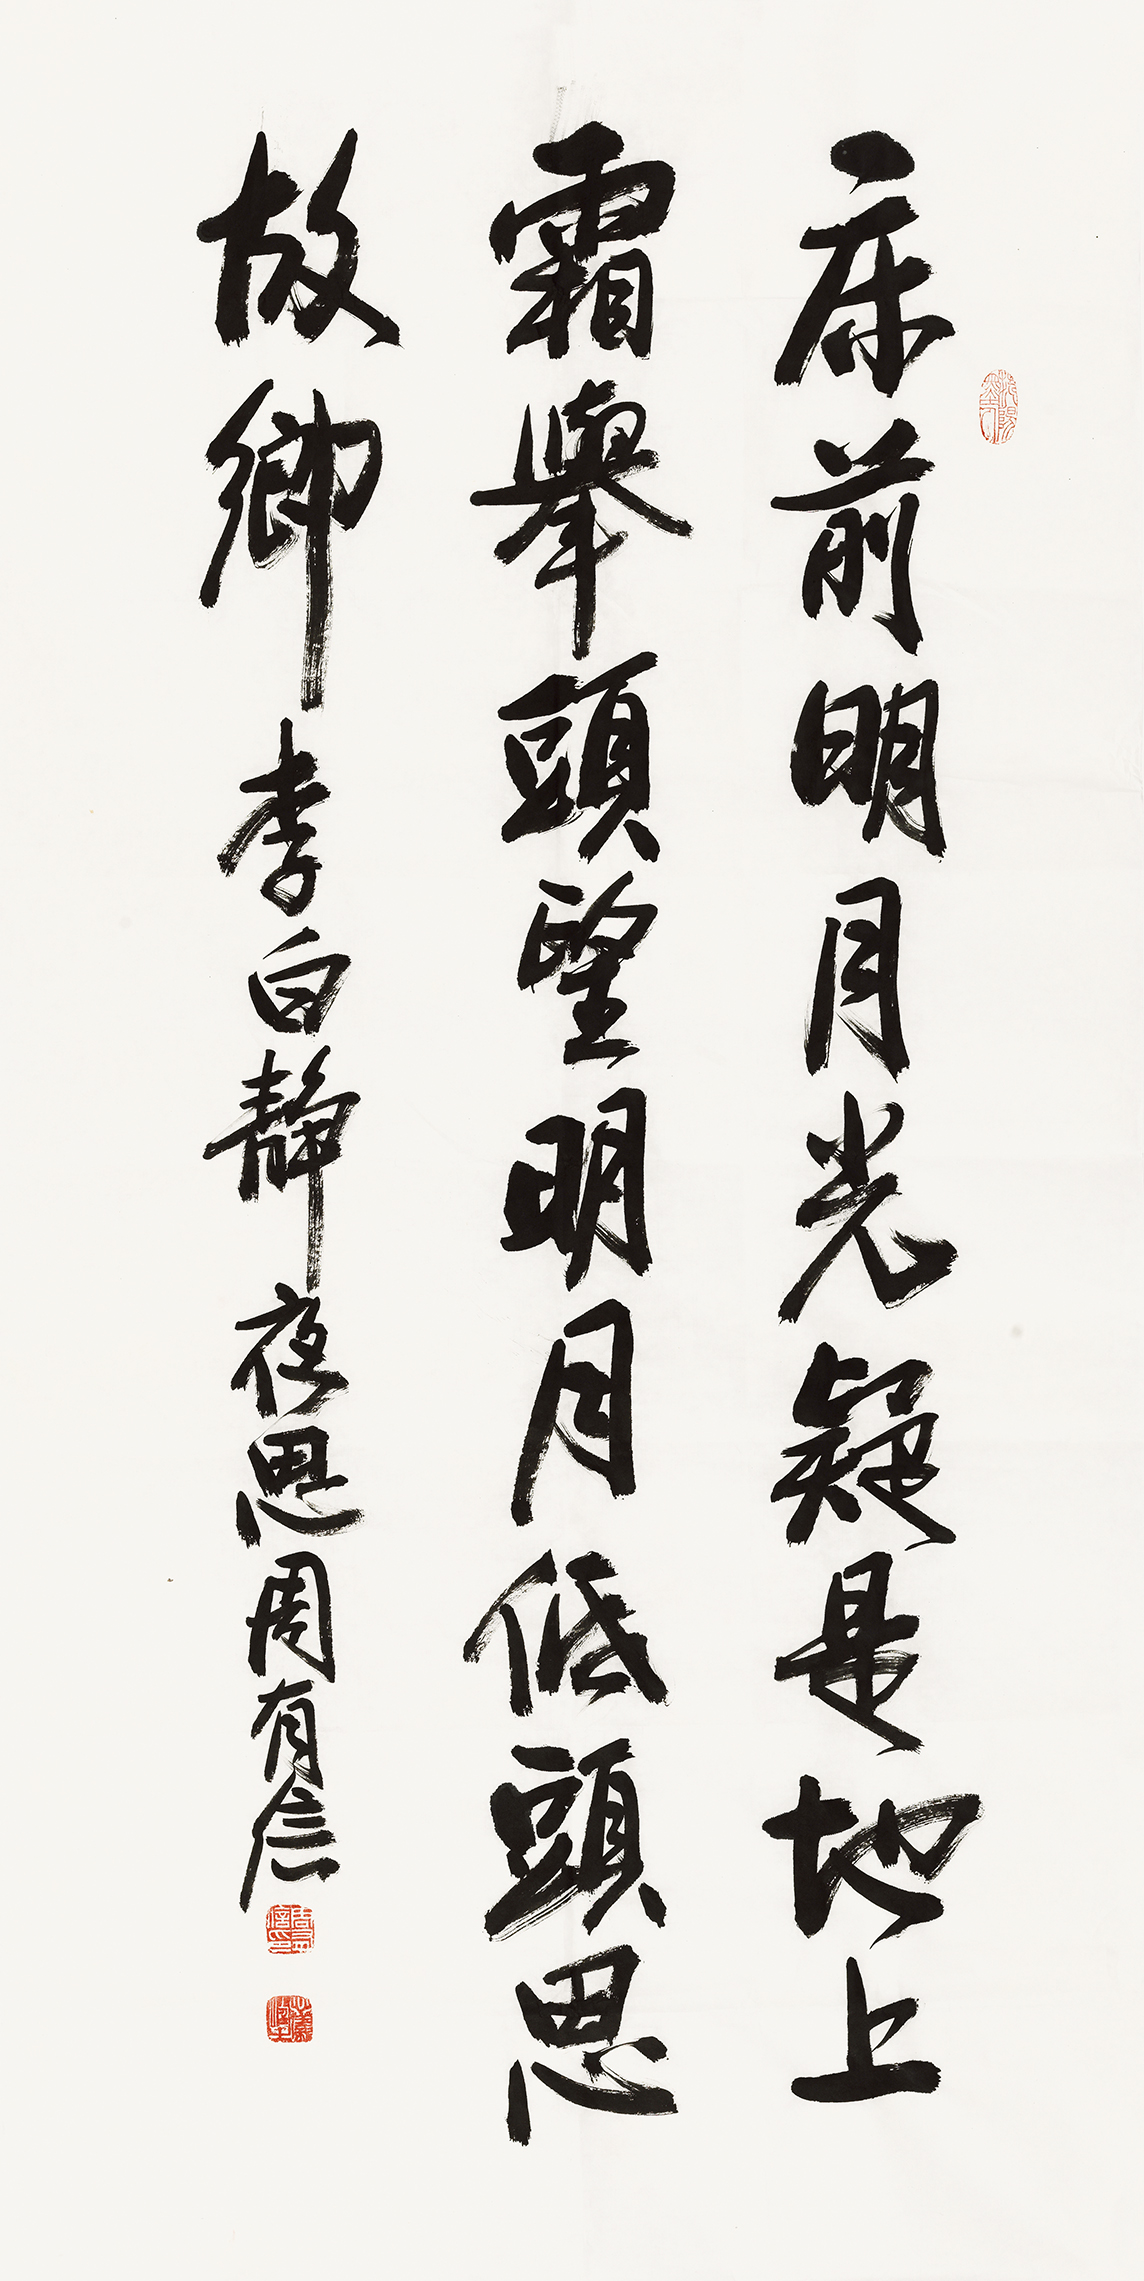 床前明月光疑是地上
霜舉頭望明月低頭思
故鄉李白靜夜思周有信